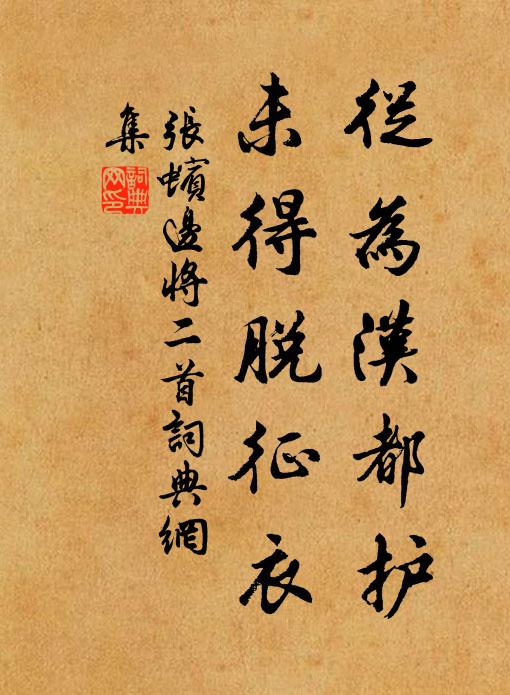 從為漢都护
未得脱征衣
張蠙邊將二首詞典網
集
詞典
网印